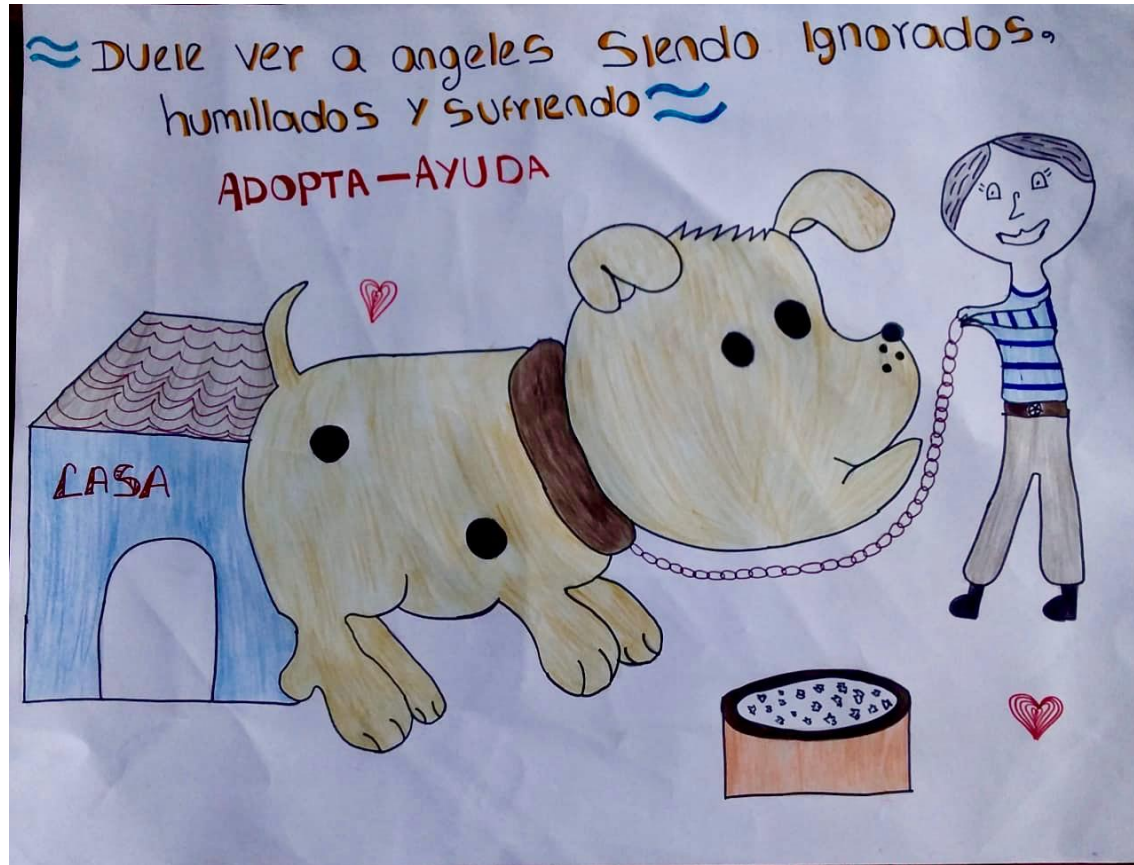 ≈ Duele ver a angeles Siendo Ignorados,
humillados y sufriendo ≈
ADOPTA-AYUDA
CASA